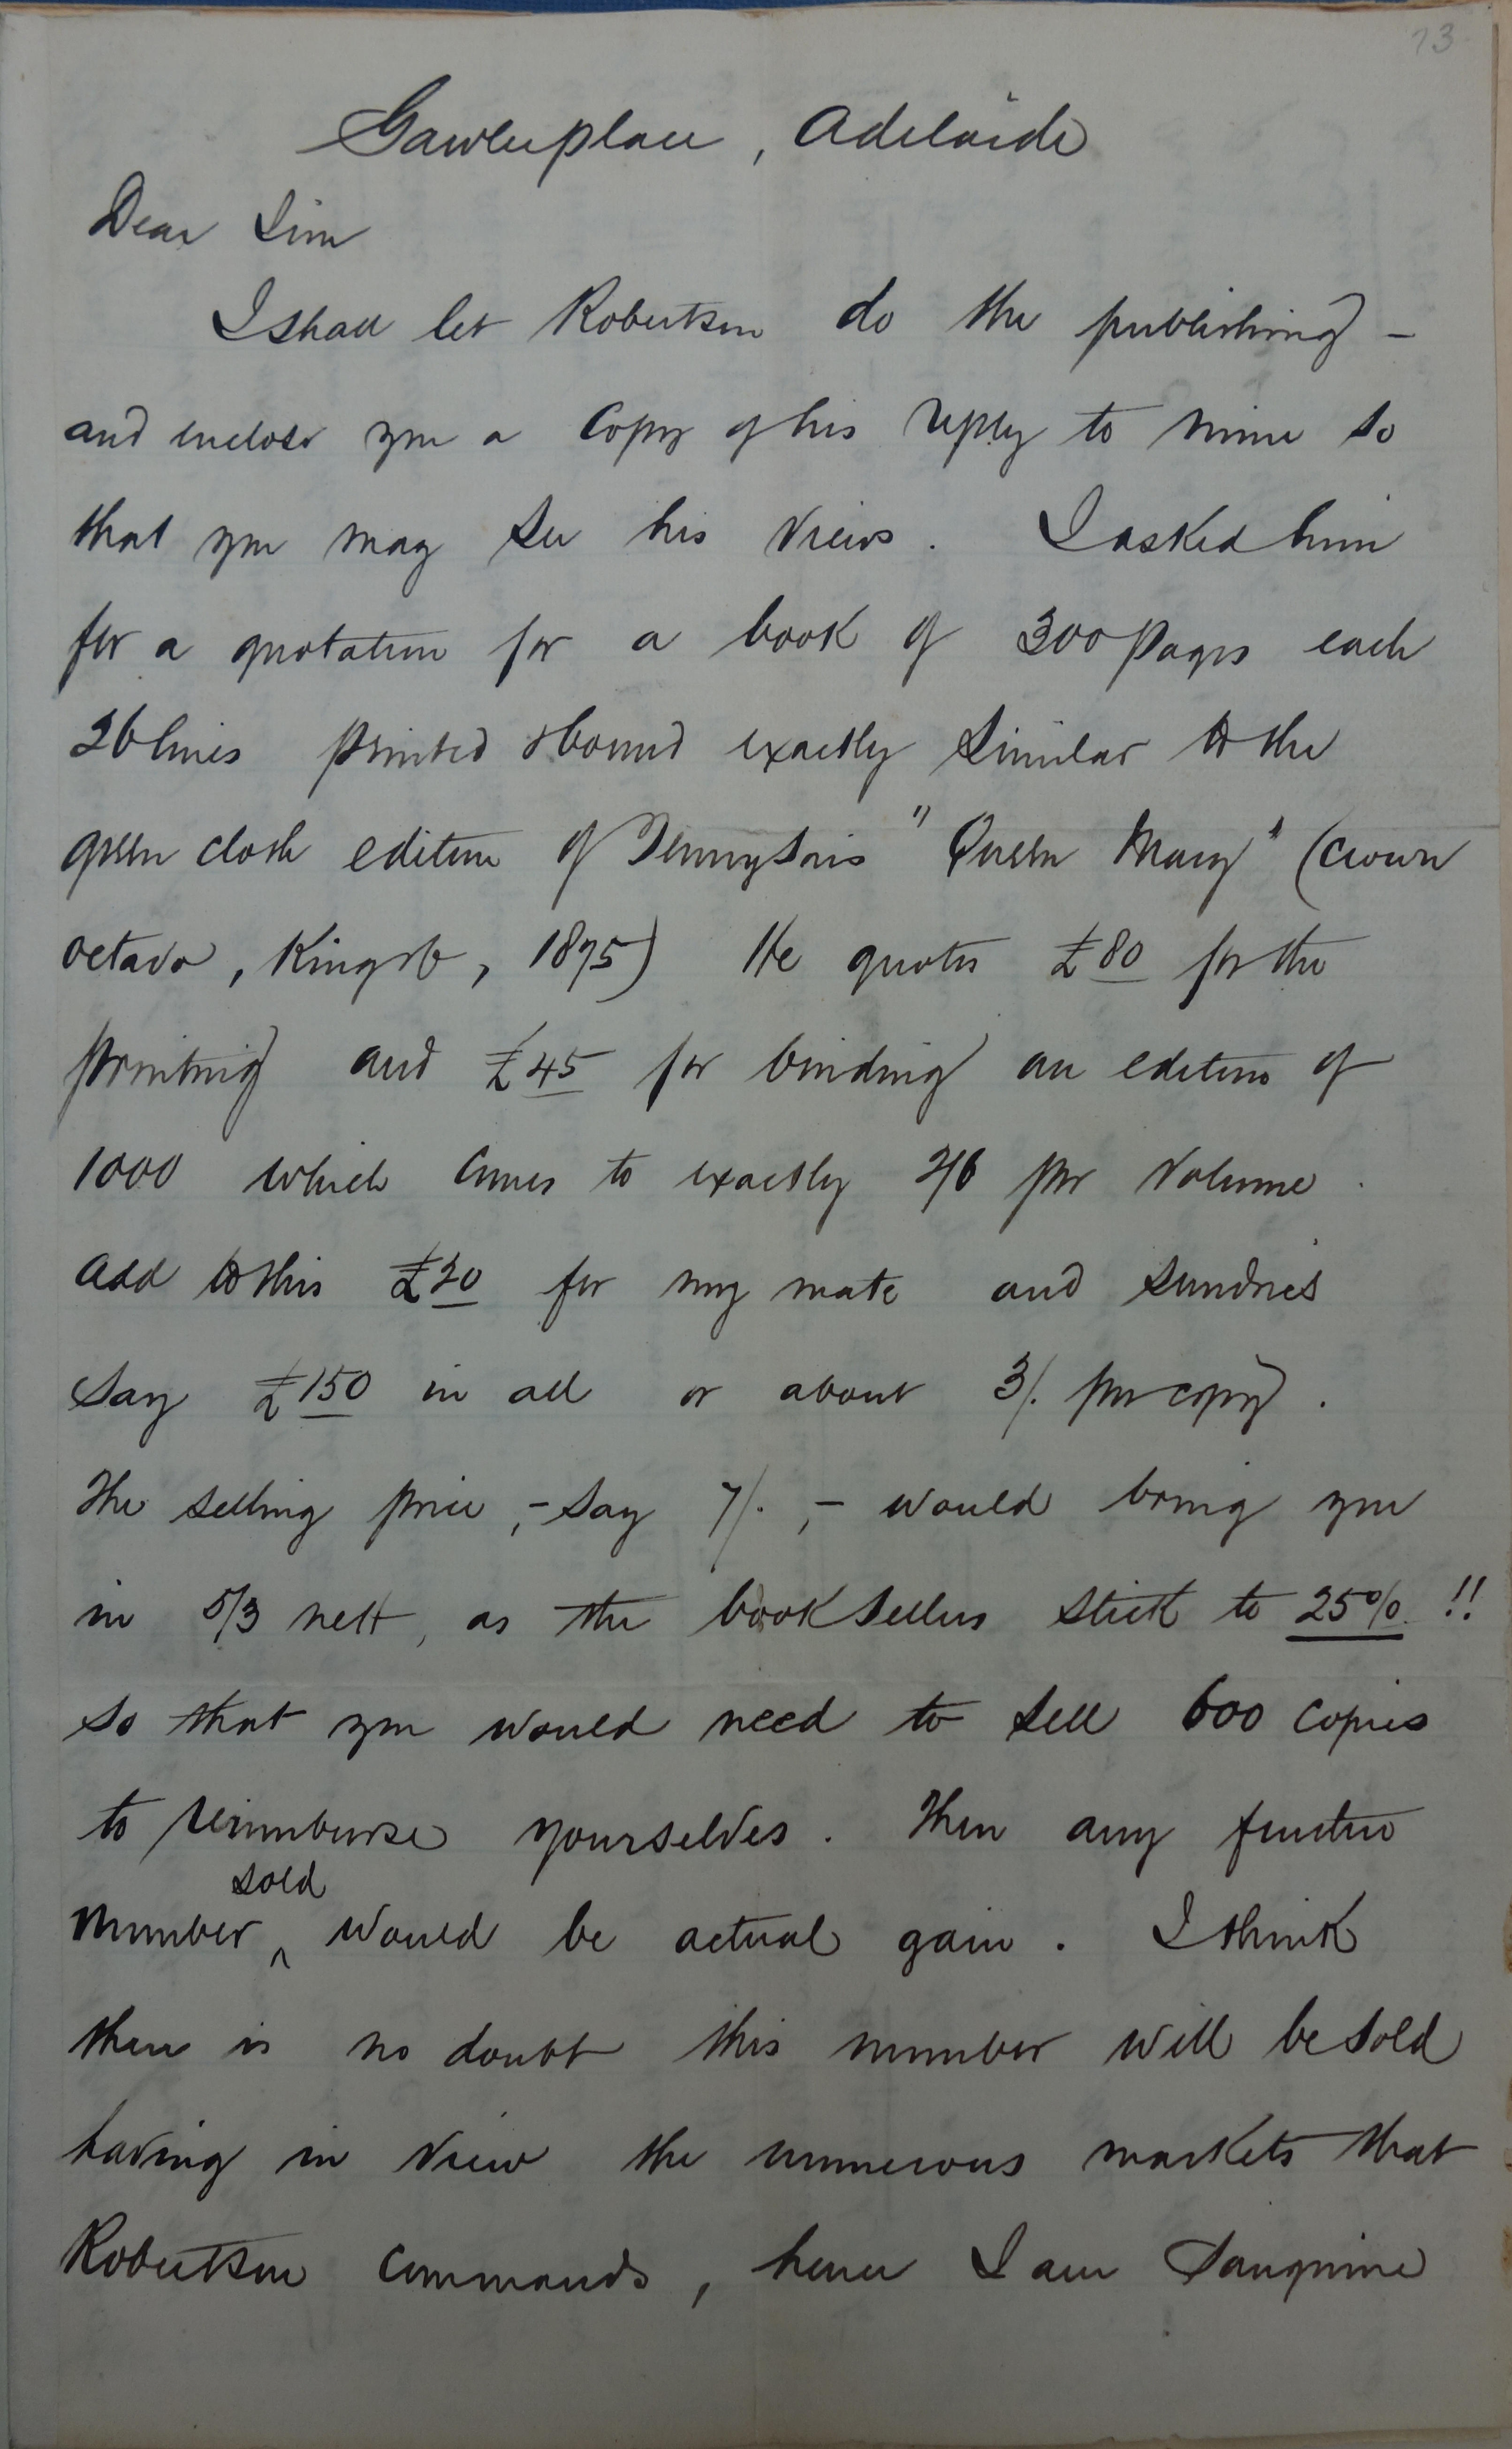 73
Gawlerplace, Adelaide
Dear Sir
I shall let Robertson do the publishing –
and enclose you a copy of his reply to mine so
that you may see his views. I asked him
for a quotation for a book of 300 pages each
26 lines printed & bound exactly similar to the
green cloth edition of Tennyson's "Queen Mary" (crown
octavo, King & Co, 1875) He quotes £80 for the
printing and £45 for binding an edition of
1000 which comes to exactly 2/6 per volume.
Add to this £20 for my mate and sundries
say £150 in all or about 3/. per copy.
The selling price, – say 7/., – would bring you
in 5/3 nett, as the booksellers stick to 25%. !!
so that you would need to sell 600 copies
to reimburse yourselves. Then any further
sold
number ^ would be actual gain. I think
there is no doubt this number will be sold
having in view the numerous markets that
Robertson commands, hence I am sanguine